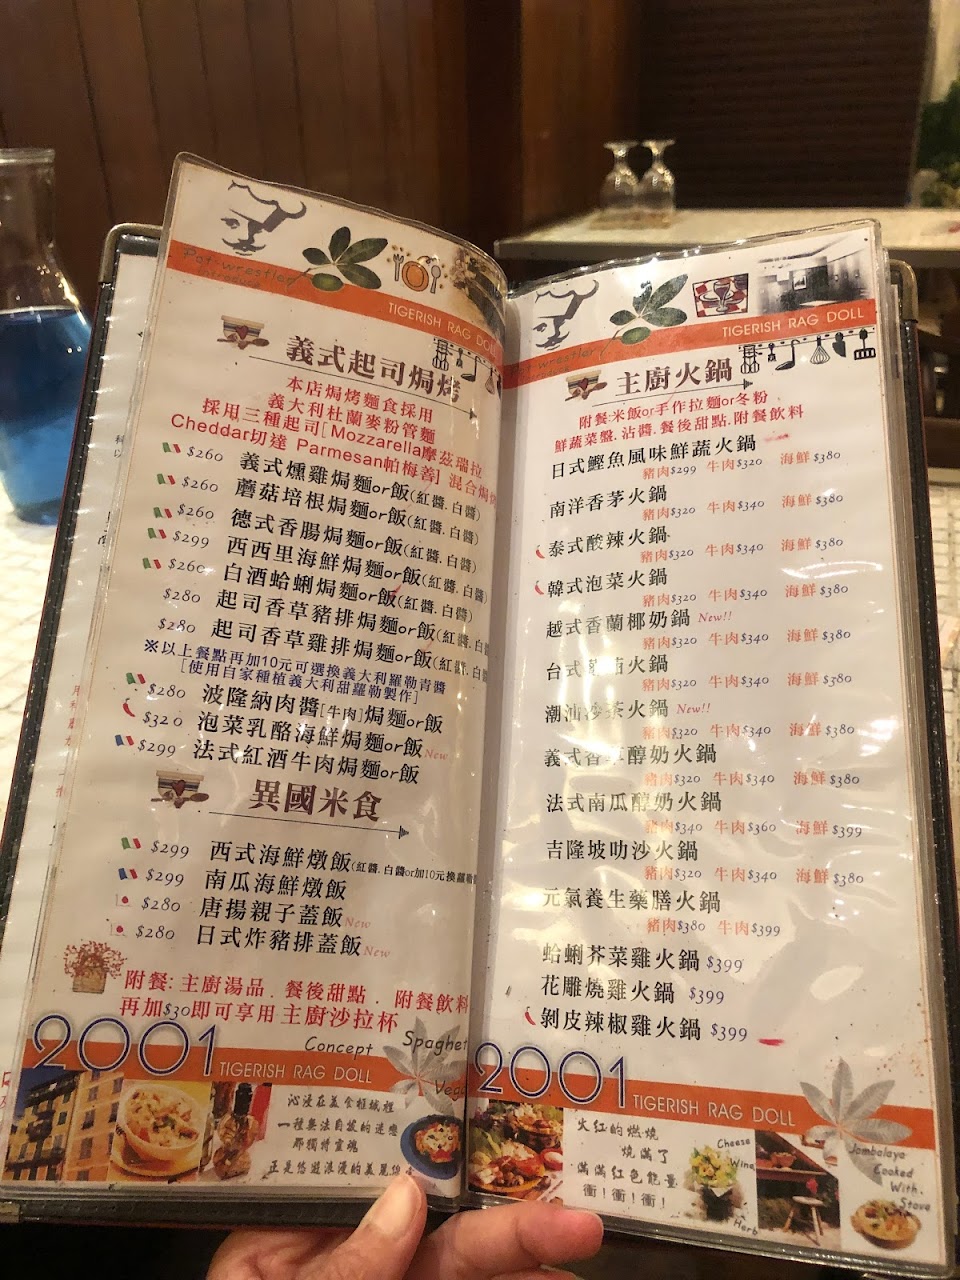 Pot-wrestler
TIGERISH RAG DOLL
義式起司焗烤
本店焗烤麵食採用
義大利杜蘭麥粉管麵
採用三種起司[Mozzarella摩茲瑞拉
Cheddar切達 Parmesan帕梅善] 混合焗烤
$260 義式燻雞焗麵or飯(紅醬.白醬)
$260 蘑菇培根焗麵or飯(紅醬.白醬)
$260 德式香腸焗麵or飯(紅醬.白醬)
$299 西西里海鮮焗麵or飯(紅醬.白醬)
$260 白酒蛤蜊焗麵or飯(紅醬.白醬)
$280 起司香草豬排焗麵or飯(紅醬.白醬)
$280 起司香草雞排焗麵or飯(紅醬.白醬)
※以上餐點再加10元可選換義大利羅勒青醬
[使用自家種植義大利甜羅勒製作]
$280 波隆納肉醬[牛肉]焗麵or飯
$320 泡菜乳酪海鮮焗麵or飯New
$299 法式紅酒牛肉焗麵or飯
異國米食
$299 西式海鮮燉飯(紅醬.白醬or加10元換羅勒青
$299 南瓜海鮮燉飯
$280 唐揚親子蓋飯New
$280 日式炸豬排蓋飯New
附餐: 主廚湯品.餐後甜點.附餐飲料
再加$30即可享用 主廚沙拉杯
2001
Concept
Spaghet
TIGERISH RAG DOLL
沁漫在美食框城裡
一種無法自拔的迷戀
那獨特靈魂
正是悠遊浪漫的美麗
TIGERISH RAG DOLL
主廚火鍋
附餐:米飯or手作拉麵or冬粉
鮮蔬菜盤.沾醬.餐後甜點.附餐飲料
日式鰹魚風味鮮蔬火鍋
豬肉$299 牛肉$320 海鮮$380
南洋香茅火鍋
豬肉$320 牛肉$340 海鮮$380
泰式酸辣火鍋
豬肉$320 牛肉$340 海鮮$380
韓式泡菜火鍋
豬肉$320 牛肉$340 海鮮$380
越式香蘭椰奶鍋 New!!
豬肉$320 牛肉$340 海鮮$380
台式 火鍋
豬肉$320 牛肉$340 海鮮$380
潮汕沙茶火鍋 New!!
豬肉$320 牛肉$340 海鮮$380
義式香草醇奶火鍋
豬肉$320 牛肉$340 海鮮$380
法式南瓜醇奶火鍋
豬肉$340 牛肉$360 海鮮$399
吉隆坡叻沙火鍋
豬肉$320 牛肉$340 海鮮$380
元氣養生藥膳火鍋
豬肉$380 牛肉$399
蛤蜊芥菜雞火鍋 $399
花雕燒雞火鍋 $399
剝皮辣椒雞火鍋 $399
2001
TIGERISH RAG DOLL
火紅的燃燒
燒滿了
滿滿紅色能量
衝!衝!衝!
Cheese
Wine
Herb
Jambalaya
Cooked
With.
Stove